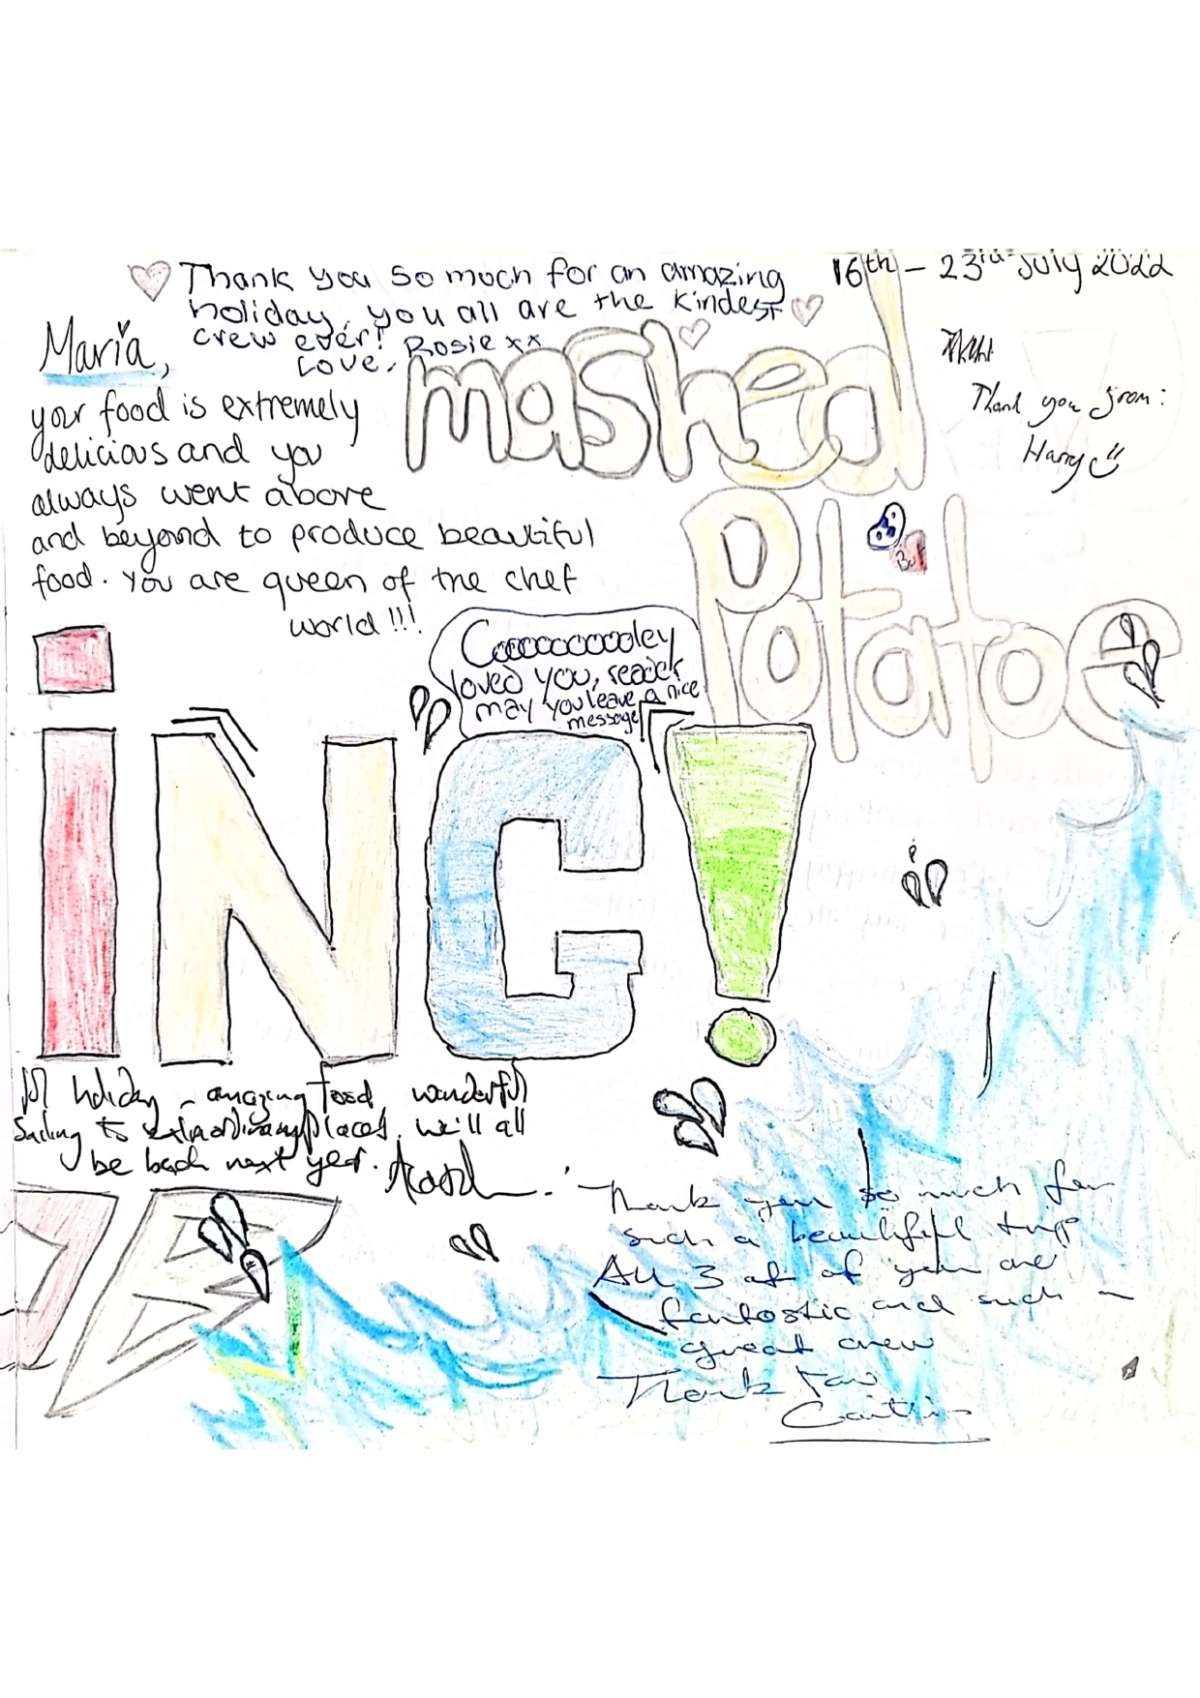 Thank you so much for an amazing
holiday, you all are the kindest
crew ever!
Love, Rosie xx
16th - 23rd July 2022
Thank you from:
Harry
mashed
Potatoe
Maria,
your food is extremely
delicious and you
always went above
and beyond to produce beautiful
food. You are queen of the chef
world!!!
Cooooooooooley
loved you, reader
may you leave a nice
message
iNG!
holiday - amazing food wonderful
Sailing to extraordinary places. We'll all
be back next year.
Thank you so much for
such a beautiful trip
All 3 of of you are
fantastic and such a
great crew
Thank you
Caitlin